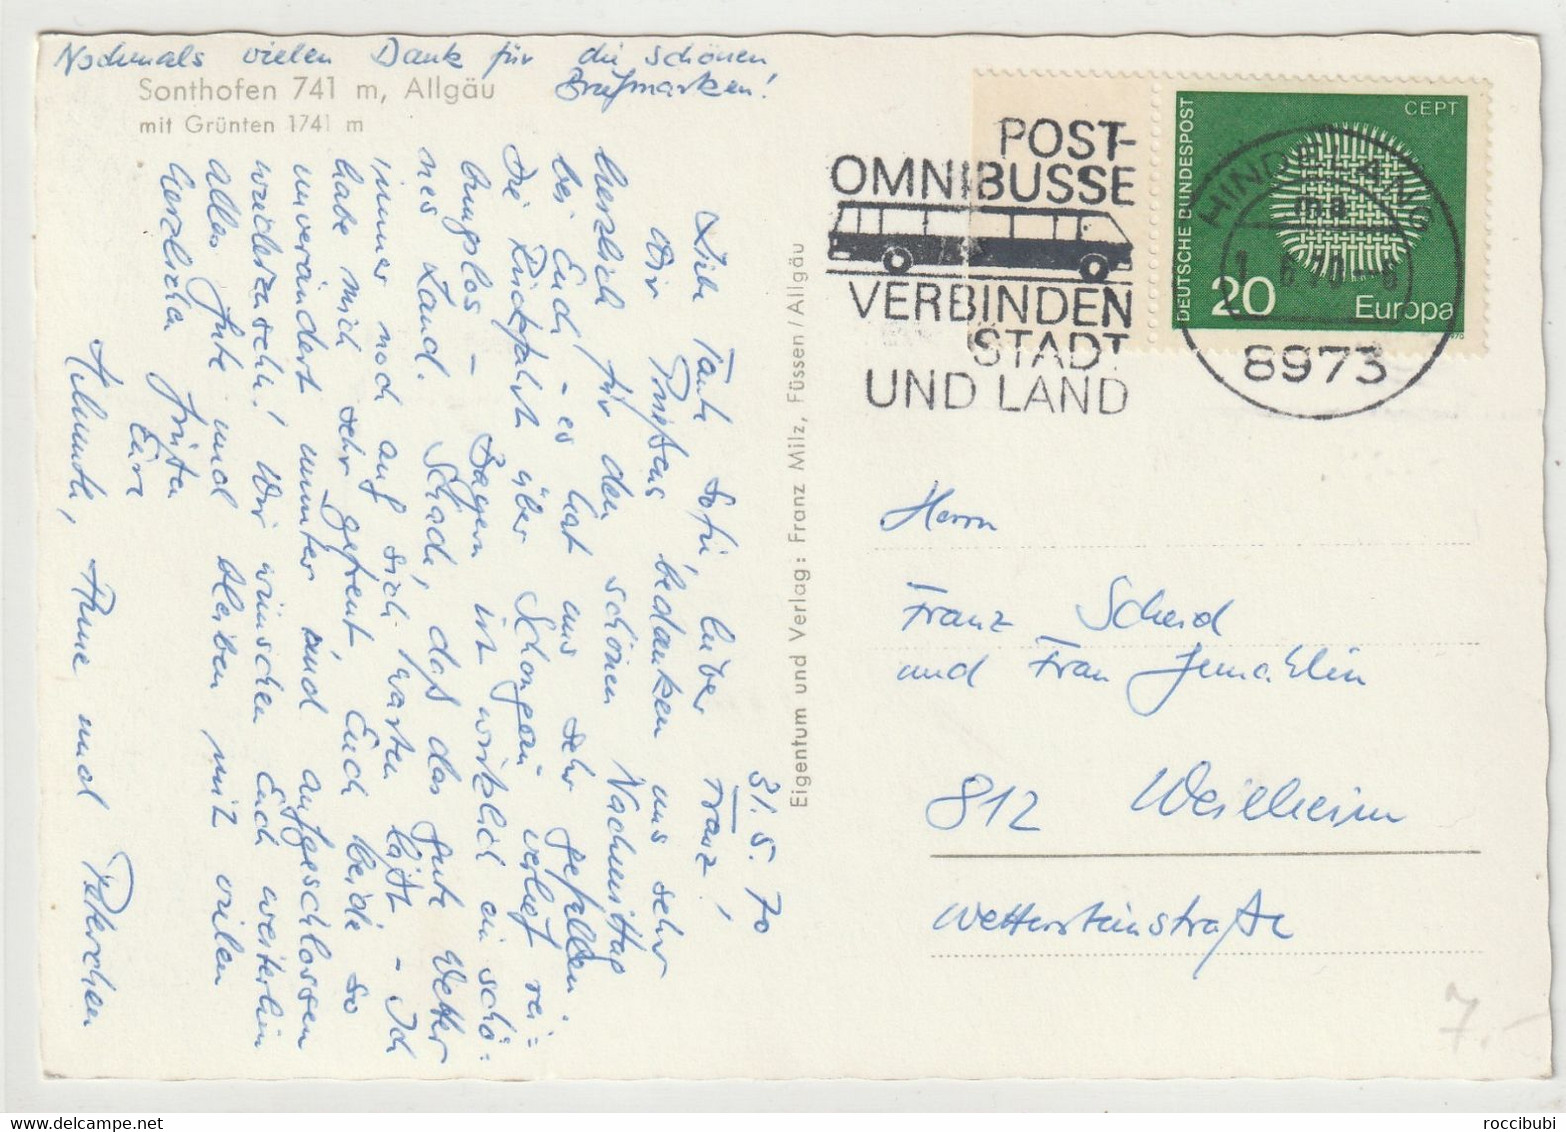 Nochmals vielen Dank für die schönen
Briefmarken!
Sonthofen 741 m, Allgäu
mit Grünten 1741 m
31.5.70
Liebe Tante Sofie, lieber Franz!
Wir bedanken uns sehr
herzlich für den schönen Nachmittag
bei Euch - es hat uns sehr gefallen.
Die Rückfahrt über Schongau verlief rei=
bungslos - Bayern ist wirklich ein schö=
nes Land. Schade, daß das gute Wetter
immer noch auf sich warten läßt - Ich
habe mich sehr gefreut, Euch beide so
unverändert munter und aufgeschlossen
wiederzusehn! Wir wünschen Euch weiterhin
alles Gute und bleiben mit vielen
herzlichen Grüßen
Eure
Helmute, Anne und Peterchen
Eigentum und Verlag: Franz Milz, Füssen/Allgäu
POST-
OMNIBUSSE
VERBINDEN
STADT
UND LAND
DEUTSCHE BUNDESPOST
CEPT
20
Europa
HINDELANG
ma
1. 6.70--8
8973
Herrn
Franz Scheid
und Frau Gemahlin
812 Weilheim
Wettersteinstraße
7.-
delcampe.net
roccibubi